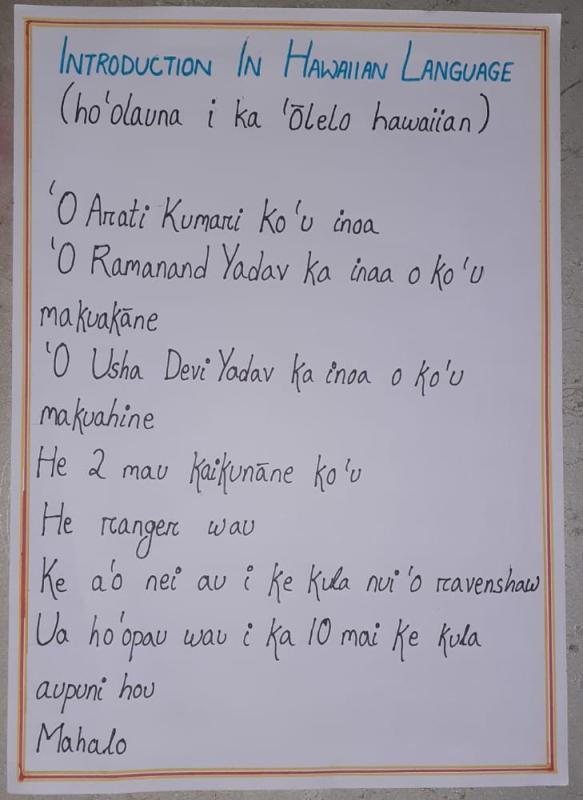 INTRODUCTION IN HAWAIIAN LANGUAGE
(ho'olauna i ka 'ōlelo hawaiian)
'O Arati Kumari ko'u inoa
'O Ramanand Yadav ka inaa o ko'u
makuakāne
'O Usha Devi Yadav ka inoa o ko'u
makuahine
He 2 mau kaikunāne ko'u
He ranger wau
Ke a'o nei au i ke kula nui 'o ravenshaw
Ua ho'opau wau i ka 10 mai ke kula
aupuni hou
Mahalo